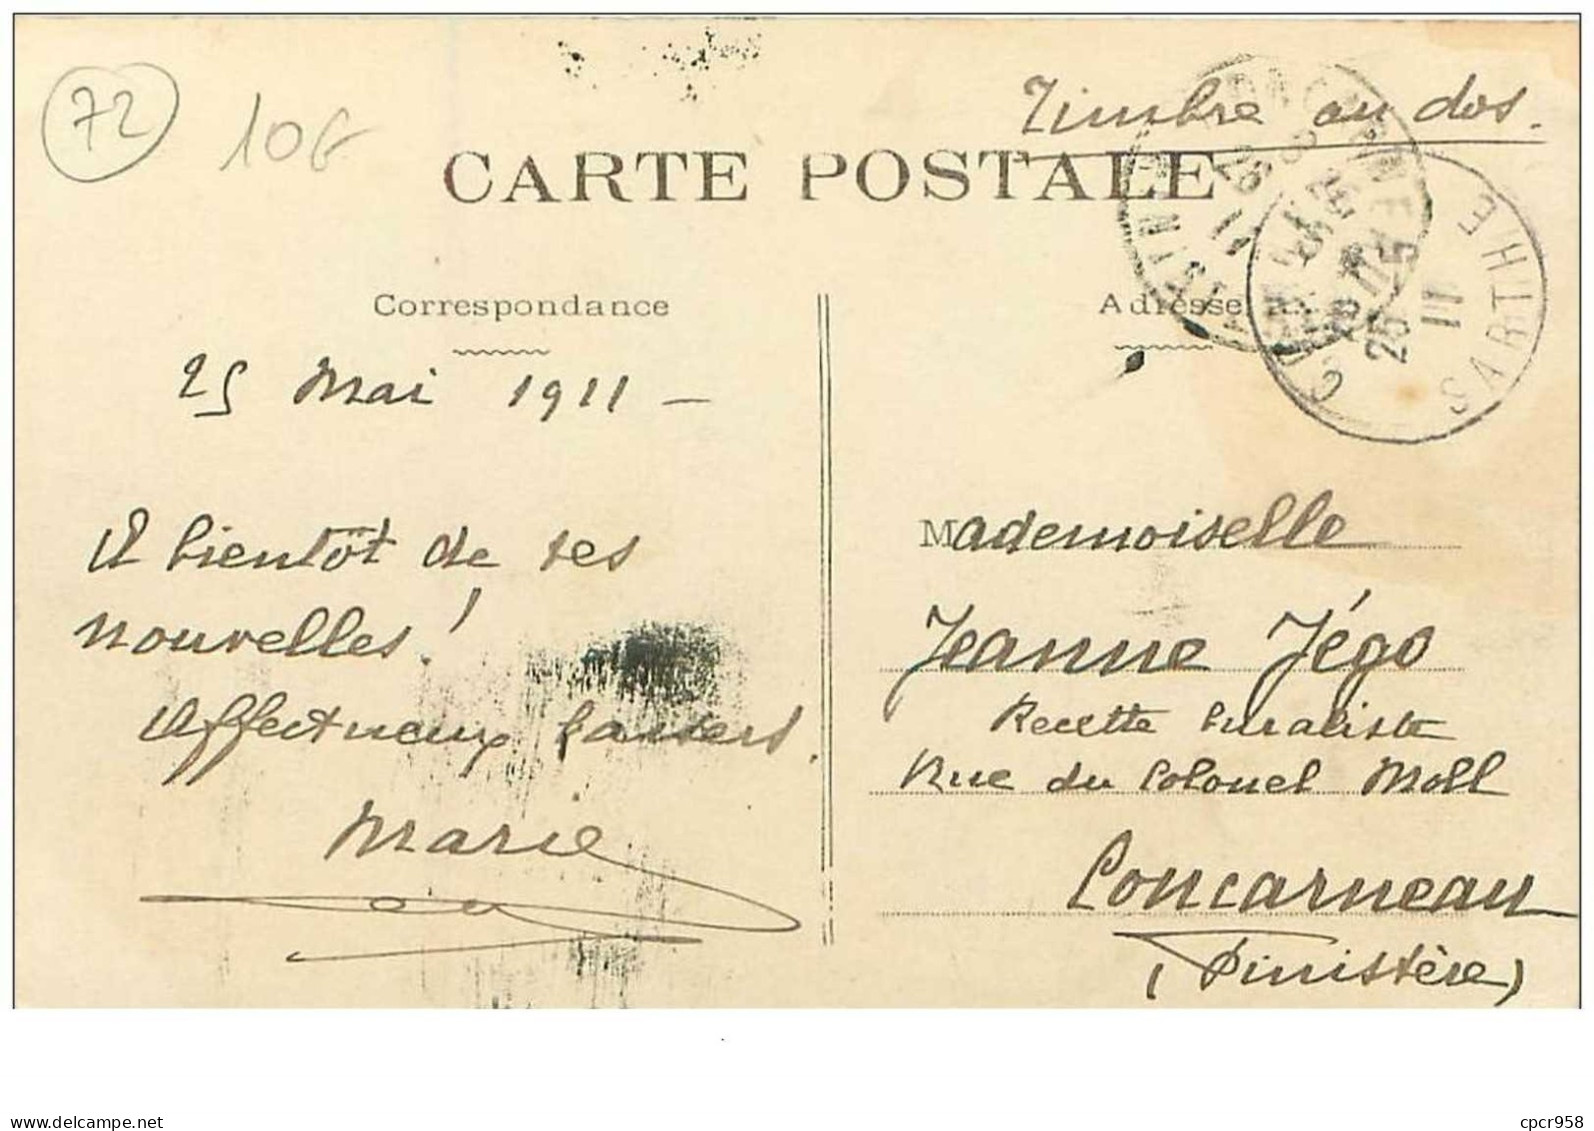 72
10€
Timbre au dos.
CARTE POSTALE
Correspondance
Adresse
SARTHE
25 Mai 1911 -
A bientôt de tes
nouvelles !
Affectueux baisers.
Marie
Mademoiselle
Jeanne Jégo
Recette buraliste
Rue du Colonel Moll
Concarneau
(Finistère)
www.delcampe.net
cpcr958